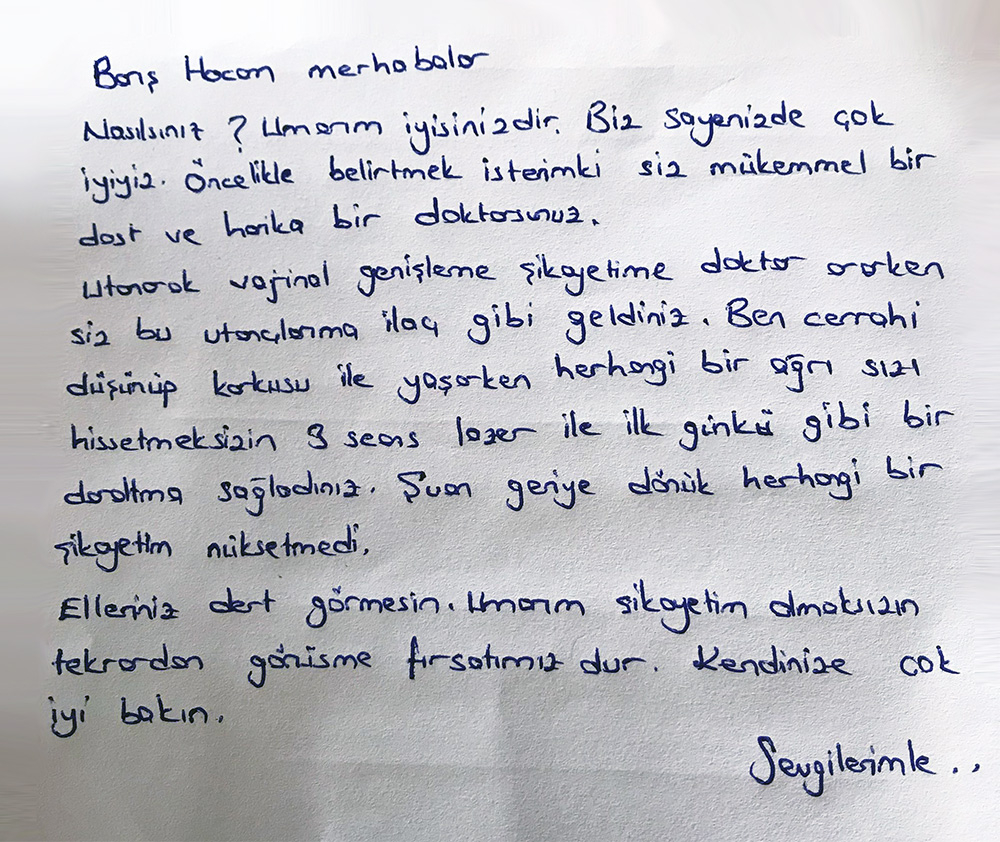 Barış Hocam merhabalar
Nasılsınız ? Umarım iyisinizdir. Biz sayenizde çok
iyiyiz. Öncelikle belirtmek isterimki siz mükemmel bir
dost ve harika bir doktorsunuz.
Utanarak vajinal genişleme şikayetime doktor ararken
siz bu utançlarıma ilaç gibi geldiniz. Ben cerrahi
düşünüp korkusu ile yaşarken herhangi bir ağrı sızı
hissetmeksizin 3 seans lazer ile ilk günkü gibi bir
daraltma sağladınız. Şuan geriye dönük herhangi bir
şikayetim nüksetmedi.
Elleriniz dert görmesin. Umarım şikayetim olmaksızın
tekrardan görüsme fırsatımız olur. Kendinize cok
iyi bakın.
Sevgilerimle ..